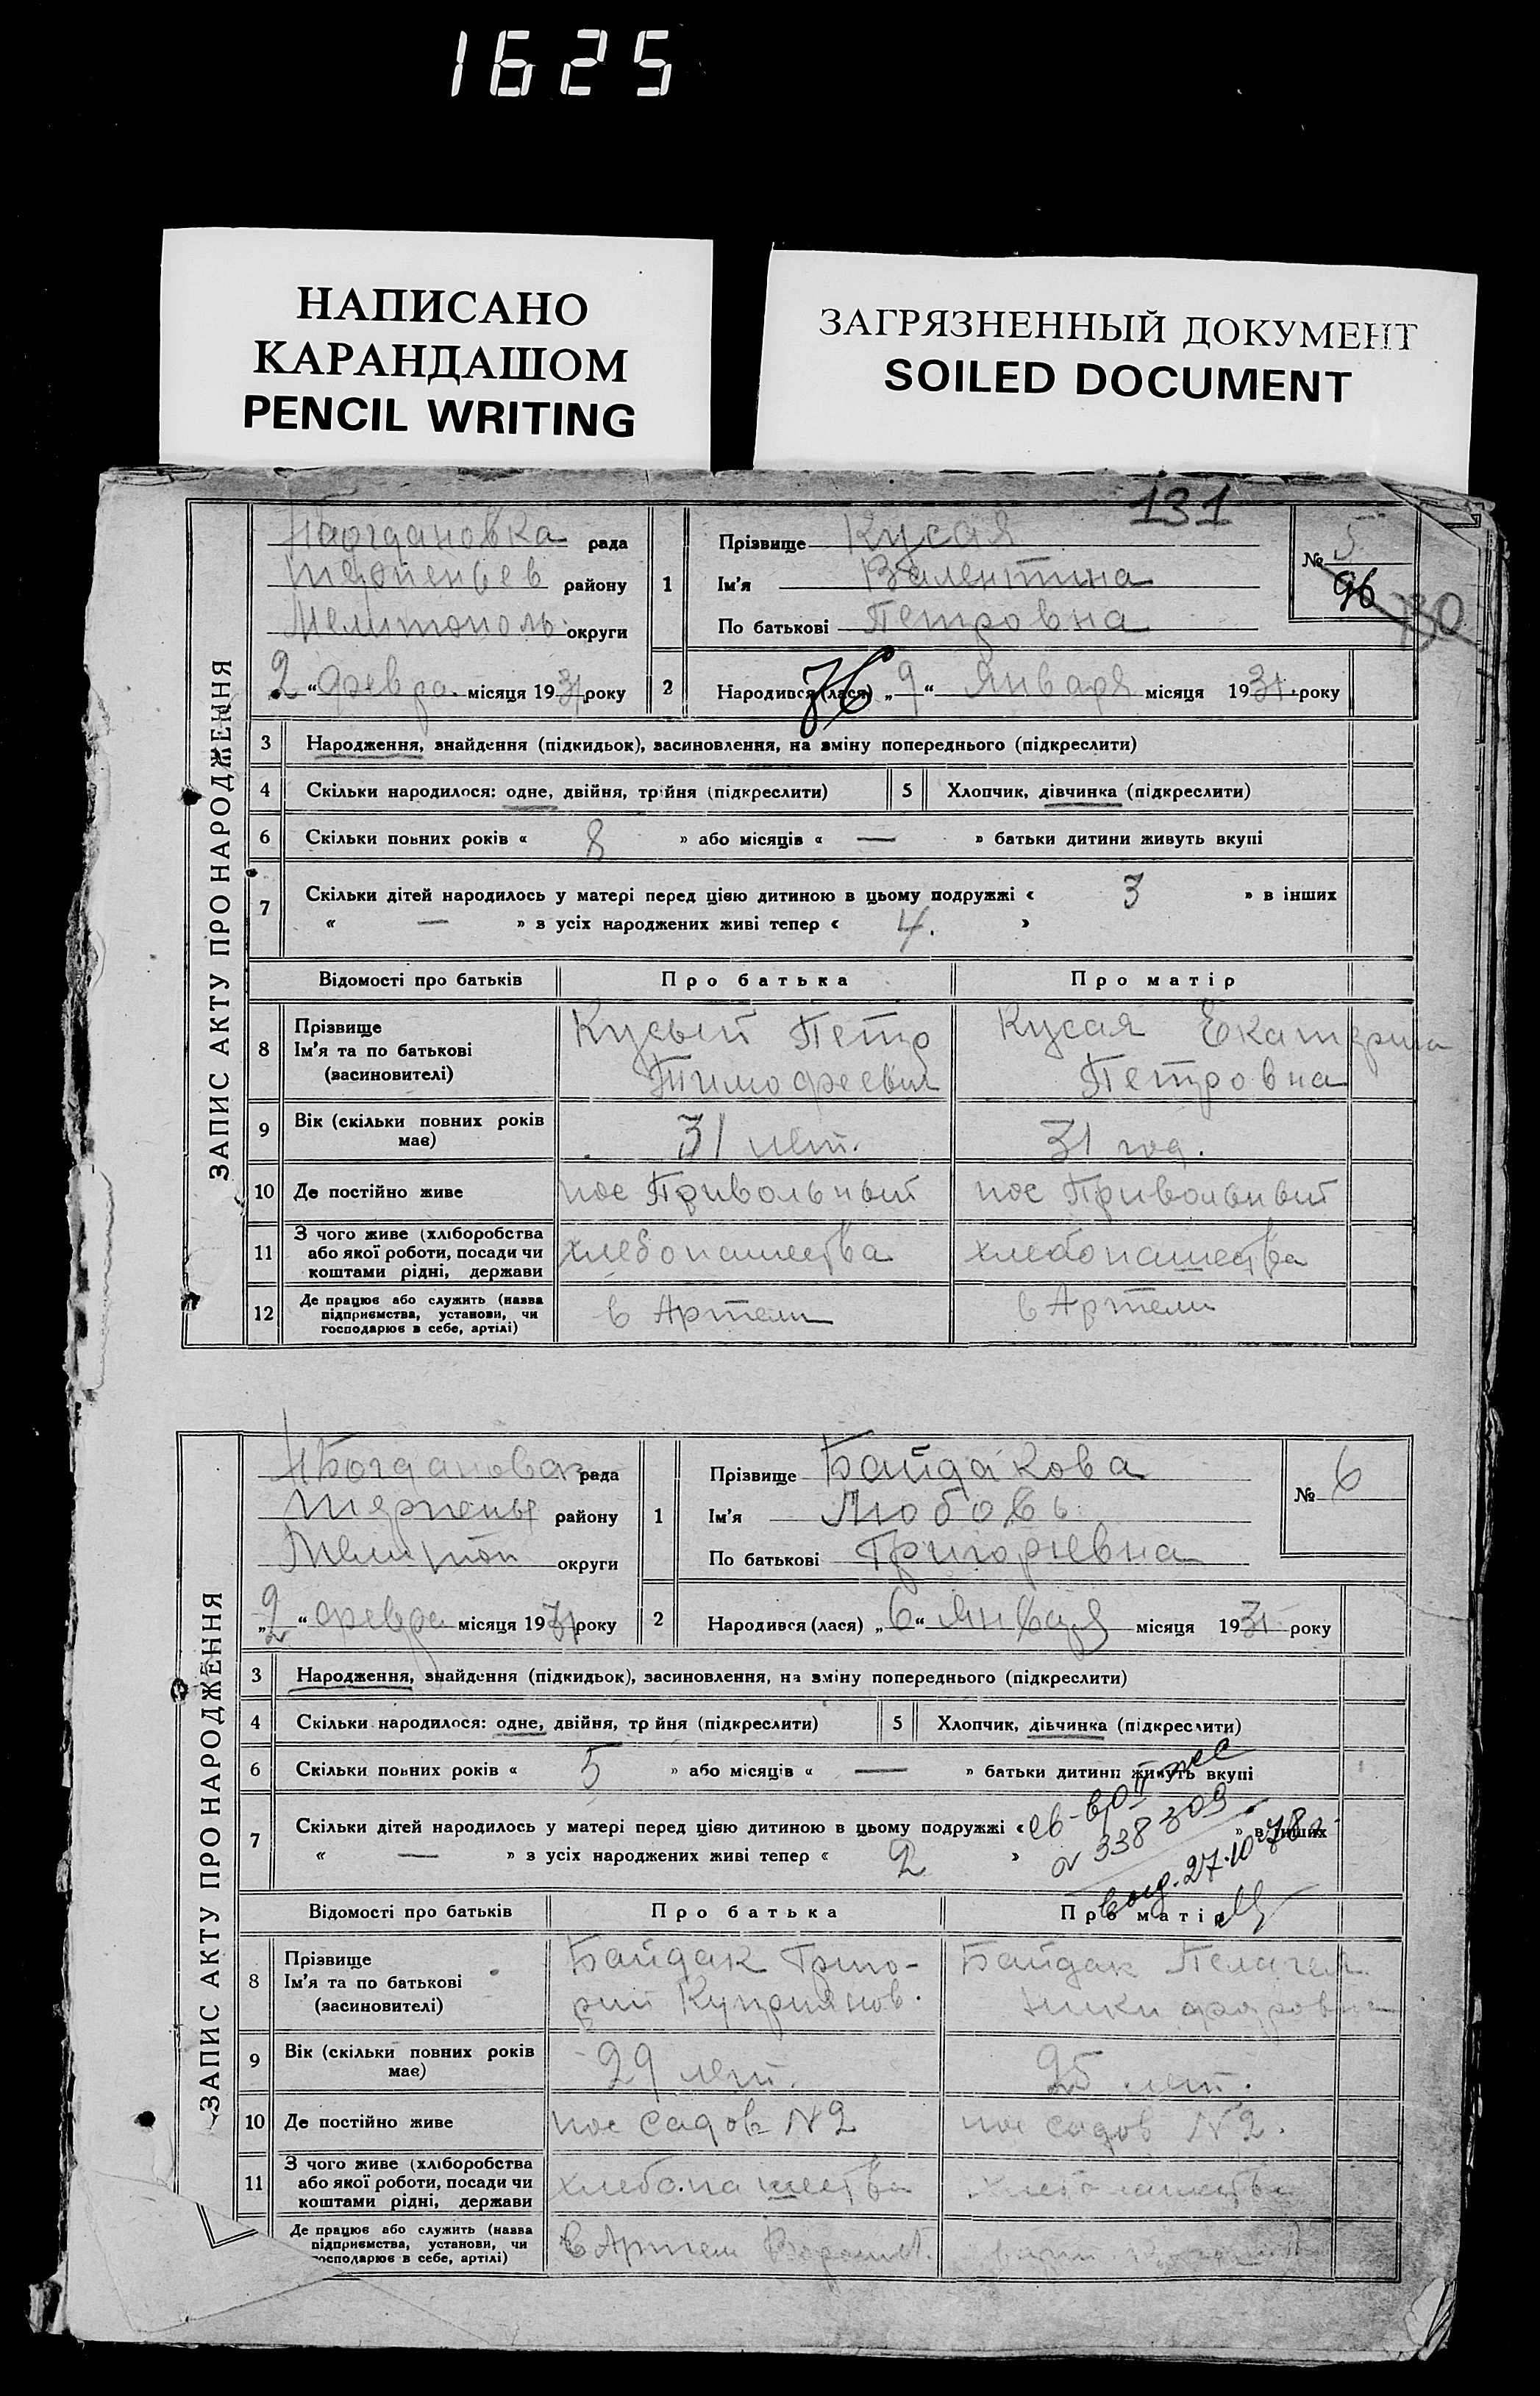 1625
НАПИСАНО
КАРАНДАШОМ
PENCIL WRITING
ЗАГРЯЗНЕННЫЙ ДОКУМЕНТ
SOILED DOCUMENT
131
ЗАПИС АКТУ ПРО НАРОДЖЕННЯ
рада
району
Мелитополь округи
2 " февра. місяця 1931 року
1
Прізвище Кусая
Ім'я Валентина
По батькові Петровна
№ 5
96
130
2 Народився (лася) „ 9 “ Января місяця 1931 року
76
3 Народження, знайдення (підкидьок), засиновлення, на зміну попереднього (підкреслити)
4 Скільки народилося: одне, двійня, трійня (підкреслити) 5 Хлопчик, дівчинка (підкреслити)
6 Скільки повних років « 8 » або місяців « — » батьки дитини живуть вкупі
7 Скільки дітей народилось у матері перед цією дитиною в цьому подружжі « 3 » в інших
« — » з усіх народжених живі тепер « 4. »
Відомості про батьків Про батька Про матір
8 Прізвище
Ім'я та по батькові
(засиновителі)
Кусый Петр
Тимофеевич
Кусая Екатерина
Петровна
9 Вік (скільки повних років
має)
31 лет. 31 год.
10 Де постійно живе пос Привольный пос Привольный
11 З чого живе (хліборобства
або якої роботи, посади чи
коштами рідні, держави
хлебопашества хлебопашества
12 Де працює або служить (назва
підприємства, установи, чи
господарює в себе, артілі)
в Артели в Артели
ЗАПИС АКТУ ПРО НАРОДЖЕННЯ
рада
району
округи
„ 2 “ февра місяця 1931 року
1
Прізвище Байдакова
Ім'я Любовь
По батькові Григорьевна
№ 6
2 Народився (лася) „ 6 “ Января місяця 1931 року
3 Народження, знайдення (підкидьок), засиновлення, на зміну попереднього (підкреслити)
4 Скільки народилося: одне, двійня, тр йня (підкреслити) 5 Хлопчик, дівчинка (підкреслити)
6 Скільки повних років « 5 » або місяців « — » батьки дитини живуть вкупі
7 Скільки дітей народилось у матері перед цією дитиною в цьому подружжі « » в інших
« — » з усіх народжених живі тепер « 2 »
338309
27.10.78
Відомості про батьків Про батька Про матір
8 Прізвище
Ім'я та по батькові
(засиновителі)
Байдак Григо-
рий Куприянов.
Байдак Пелагея
Никифоровна
9 Вік (скільки повних років
має)
29 лет. 25 лет.
10 Де постійно живе пос садов N2 пос садов N2.
11 З чого живе (хліборобства
або якої роботи, посади чи
коштами рідні, держави
хлебопашества хлебопашества
Де працює або служить (назва
підприємства, установи, чи
господарює в себе, артілі)
в Артели